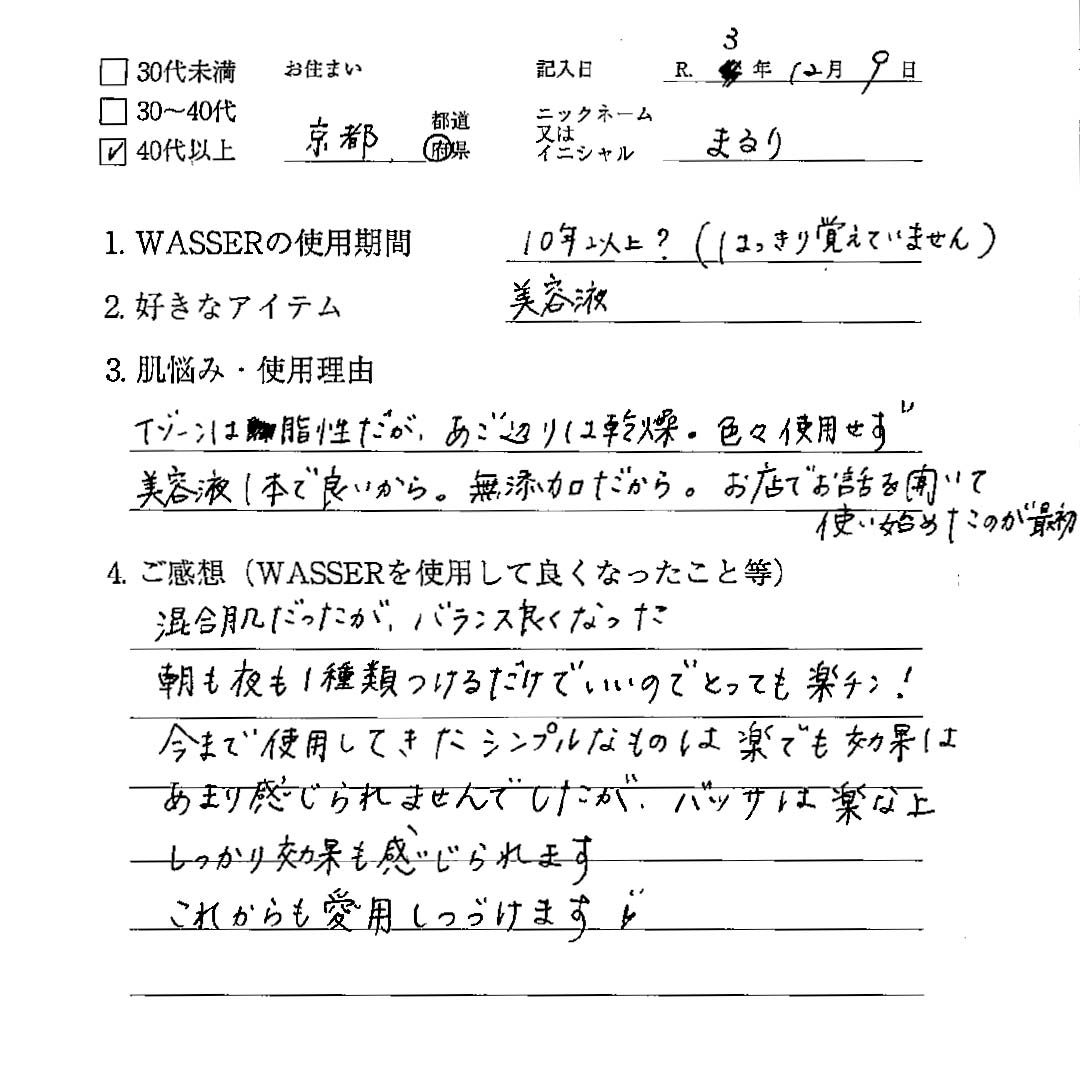 □ 30代未満 お住まい 記入日 R. 3年 12月 9日
□ 30～40代
☑ 40代以上 京都 都道府県 ニックネーム又はイニシャル まるり
1. WASSERの使用期間 10年以上？（はっきり覚えていません）
2. 好きなアイテム 美容液
3. 肌悩み・使用理由
Tゾーンは脂性だが、あご辺りは乾燥。色々使用せず
美容液1本で良いから。無添加だから。お店でお話を聞いて
使い始めたのが最初
4. ご感想（WASSERを使用して良くなったこと等）
混合肌だったが、バランス良くなった
朝も夜も1種類つけるだけでいいのでとっても楽チン！
今まで使用してきたシンプルなものは楽でも効果は
あまり感じられませんでしたが、バッサは楽な上
しっかり効果も感じられます
これからも愛用しつづけます